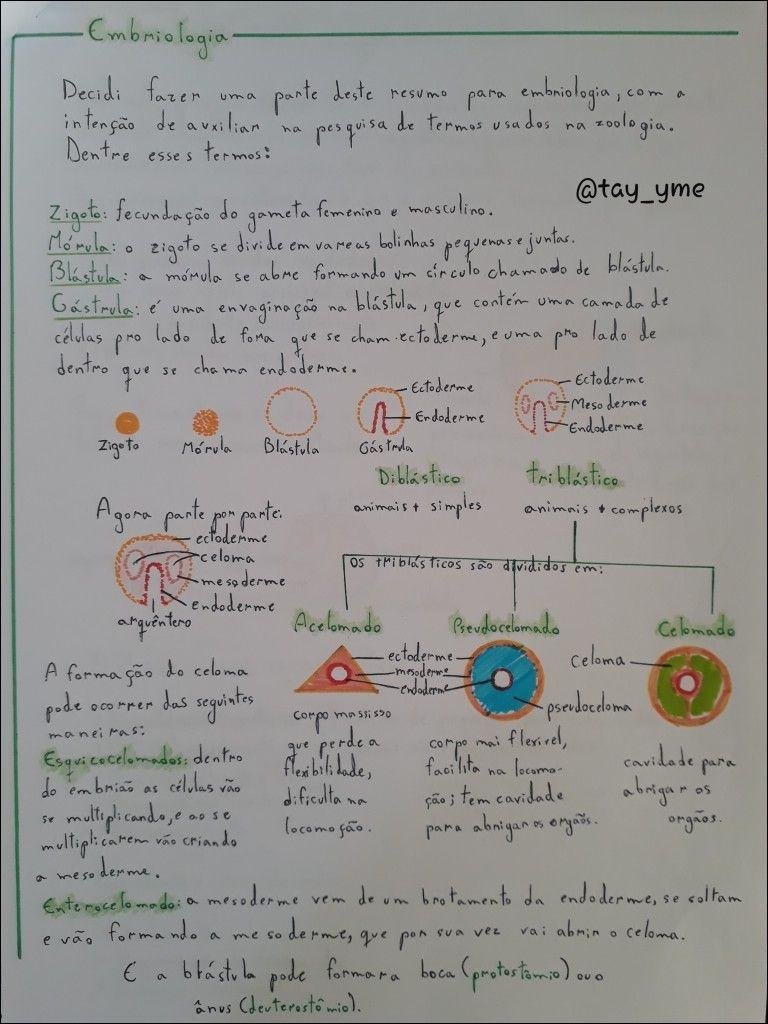 Embriologia
Decidi fazer uma parte deste resumo para embriologia, com a
intenção de auxiliar na pesquisa de termos usados na zoologia.
Dentre esses termos:
@tay_yme
Zigoto: fecundação do gameta femenino e masculino.
Mórula: o zigoto se divide em vareas bolinhas pequenas e juntas.
Blástula: a mórula se abre formando um círculo chamado de blástula.
Gástrula: é uma envaginação na blástula, que contém uma camada de
células pro lado de fora que se cham.ectoderme, e uma pro lado de
dentro que se chama endoderme.
Zigoto
Mórula
Blástula
Ectoderme
Endoderme
Gástrula
Ectoderme
Mesoderme
Endoderme
Diblástico
animais + simples
triblástico
animais + complexos
Agora parte por parte:
ectoderme
celoma
mesoderme
endoderme
arquêntero
Os triblásticos são divididos em:
Acelomado
Pseudocelomado
Celomado
ectoderme
mesoderme
endoderme
pseudoceloma
Celoma
corpo massisso
que perde a
flexibilidade,
dificulta na
locomoção.
corpo mai flexível,
facilita na locomo-
ção; tem cavidade
para abrigar os orgãos.
cavidade para
abrigar os
orgãos.
A formação do celoma
pode ocorrer das seguintes
maneiras:
Esquizocelomados: dentro
do embrião as células vão
se multiplicando, e ao se
multiplicarem vão criando
a mesoderme.
Enterocelomado: a mesoderme vem de um brotamento da endoderme, se soltam
e vão formando a mesoderme, que por sua vez vai abrir o celoma.
E a blástula pode formar a boca (protostômio) ou o
ânus (deuterostômio).